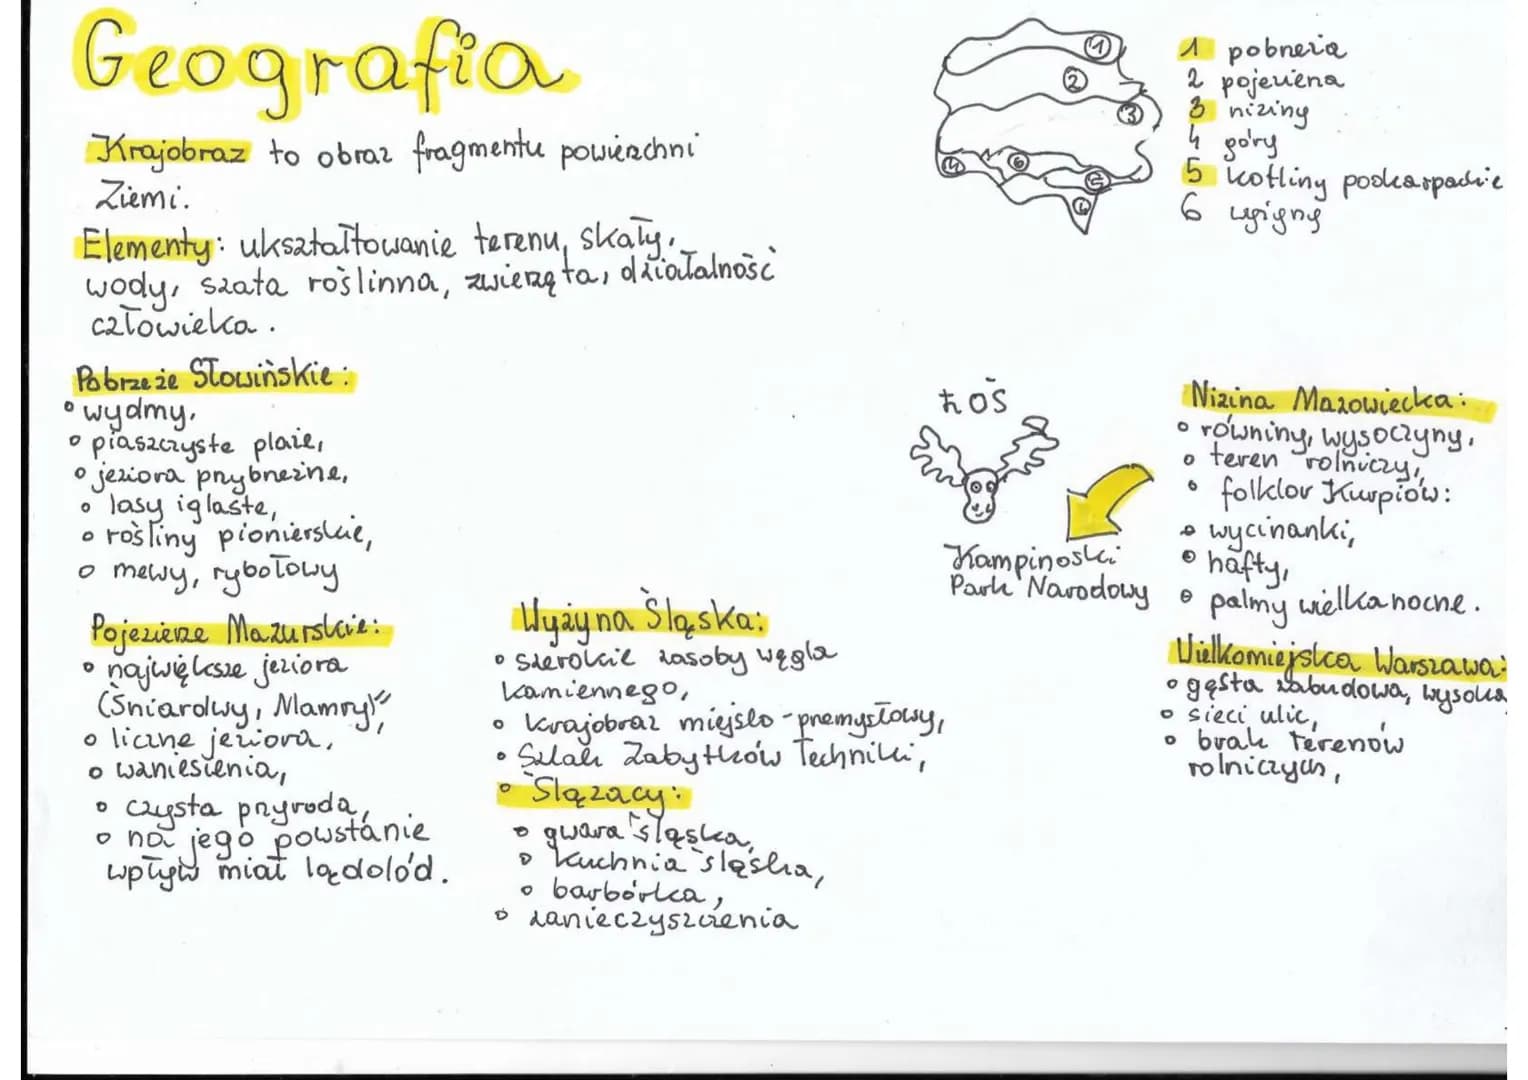 Geografia
Krajobraz to obraz fragmentu powierzchni
Ziemi.
Elementy: ukształtowanie terenu, skały,
wody, szata roślinna, zwierzęta, działalność
człowieka.
1
2
3
4
6
5
4
1 pobrzeża
2 pojezierza
3 niziny
4 góry
5 kotliny podkarpackie
6 wyżyny
Pobrzeże Słowińskie:
• wydmy,
• piaszczyste plaże,
• jeziora przybrzeżne,
• lasy iglaste,
• rośliny pionierskie,
• mewy, rybołowy
Pojezierze Mazurskie:
• największe jeziora
(Śniardwy, Mamry),
• liczne jeziora,
• wzniesienia,
• czysta przyroda,
• na jego powstanie
wpływ miał lądolód.
Wyżyna Śląska:
• szerokie zasoby węgla
kamiennego,
• krajobraz miejsko-przemysłowy,
• Szlak Zabytków Techniki,
• Ślązacy:
• gwara śląska,
• kuchnia śląska,
• barbórka,
• zanieczyszczenia
ŁOŚ
Kampinoski
Park Narodowy
Nizina Mazowiecka:
• równiny, wysoczyzny,
• teren rolniczy,
• folklor Kurpiów:
• wycinanki,
• hafty,
• palmy wielkanocne.
Wielkomiejska Warszawa:
• gęsta zabudowa, wysoka
• sieci ulic,
• brak terenów
rolniczych,